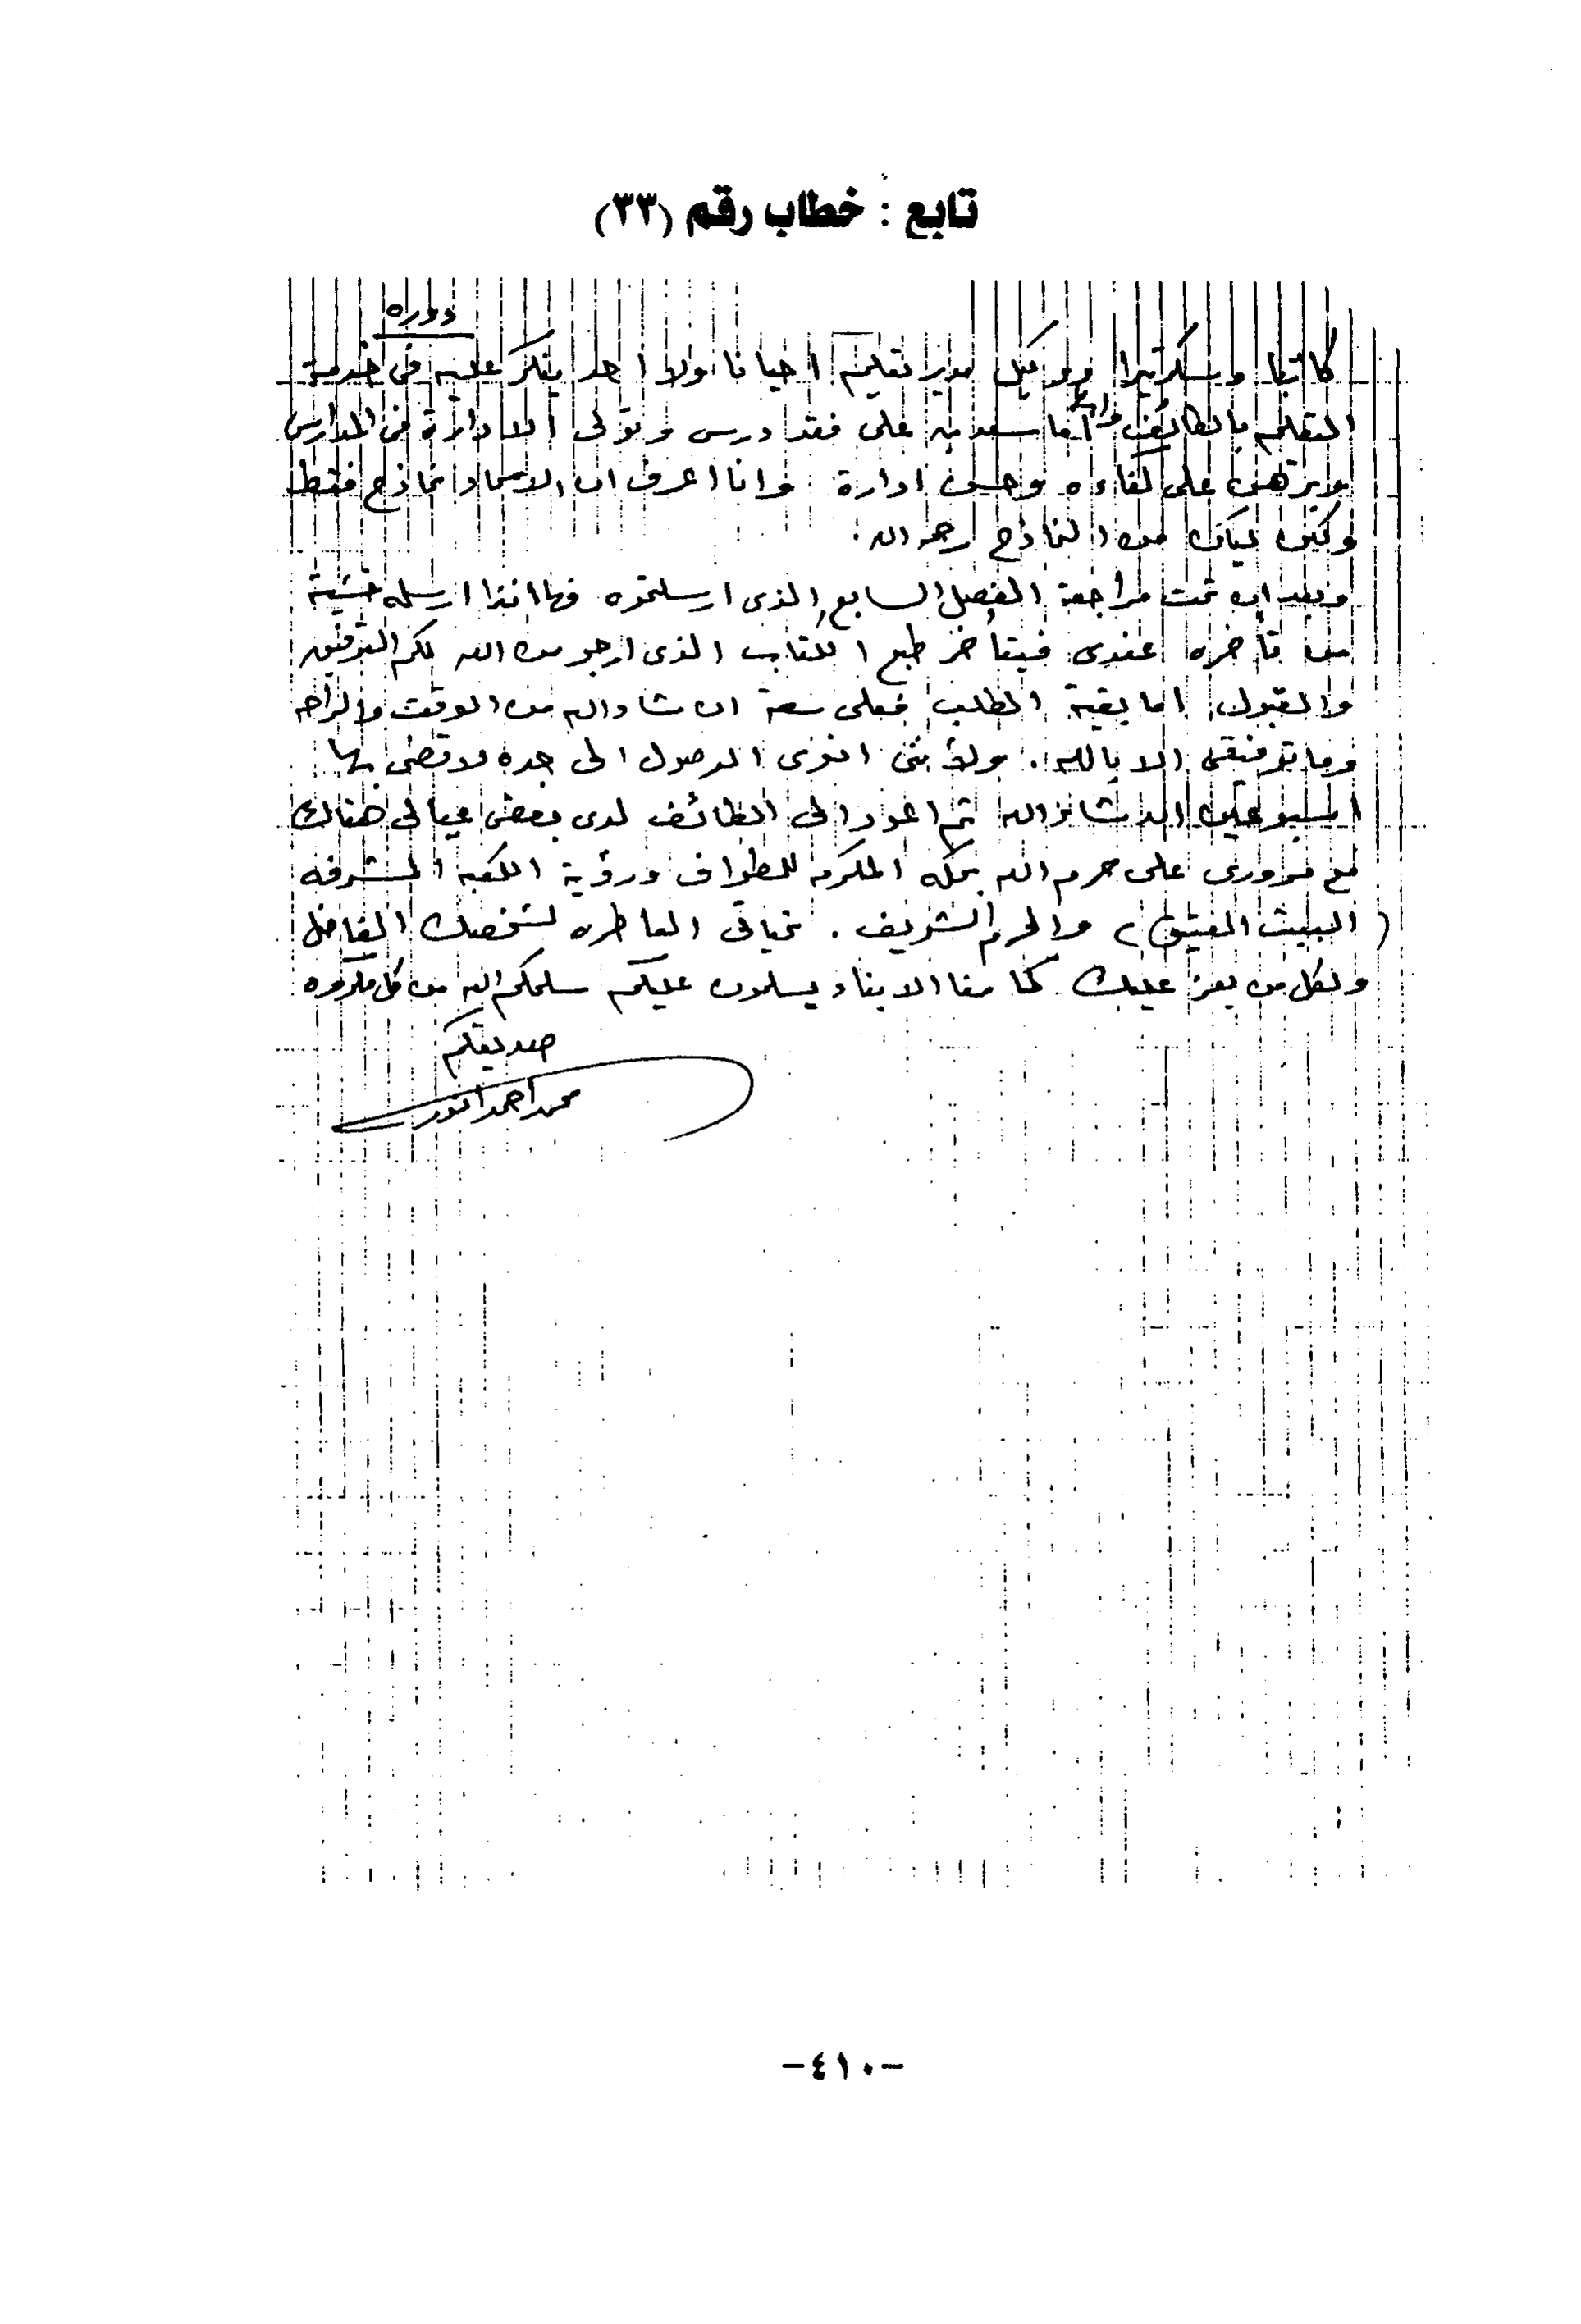 تابع : خطاب رقم (٣٣)
دوره
كاتبا وسكرتيرا ووكيل مدير تعليم احيانا ولا احد ينكر عليه فى خدمة
التعليم بالطائف واما سعد على فقد درس وتولى الادارة فى المدارس
وبرهن على كفاءه وحسن ادارة وانا اعرف ان الاسماء نماذج فقط
وكيف من النماذج رحمه الله .
وبعد ان تمت مراجعة الفصل السابع الذى ارسلتموه فها انذا ارسله خشية
من تأخره عندى فيتأخر طبع الكتاب الذى ارجو من الله لكم التوفيق
والقبول اما بقية الطلب فعلى سعة ان شاء الله من الوقت والراحه
وما توفيقى الا بالله . ولأننى انوى الوصول الى جده لاقضى بها
اسبوعين ان شاء الله ثم اعود الى الطائف لدى بعض عيالى هناك
مع مرورى على حرم الله بمكه المكرمه للطواف ورؤية الكعبه المشرفه
( البيت العتيق ) والحرم الشريف . تحياتى العاطره لشخصك الفاضل
ولكل من يعز عليك كما منا الابناء يسلمون عليكم سلمكم الله من كل مكروه
صديقكم
محمد احمد انور
-٤١٠-